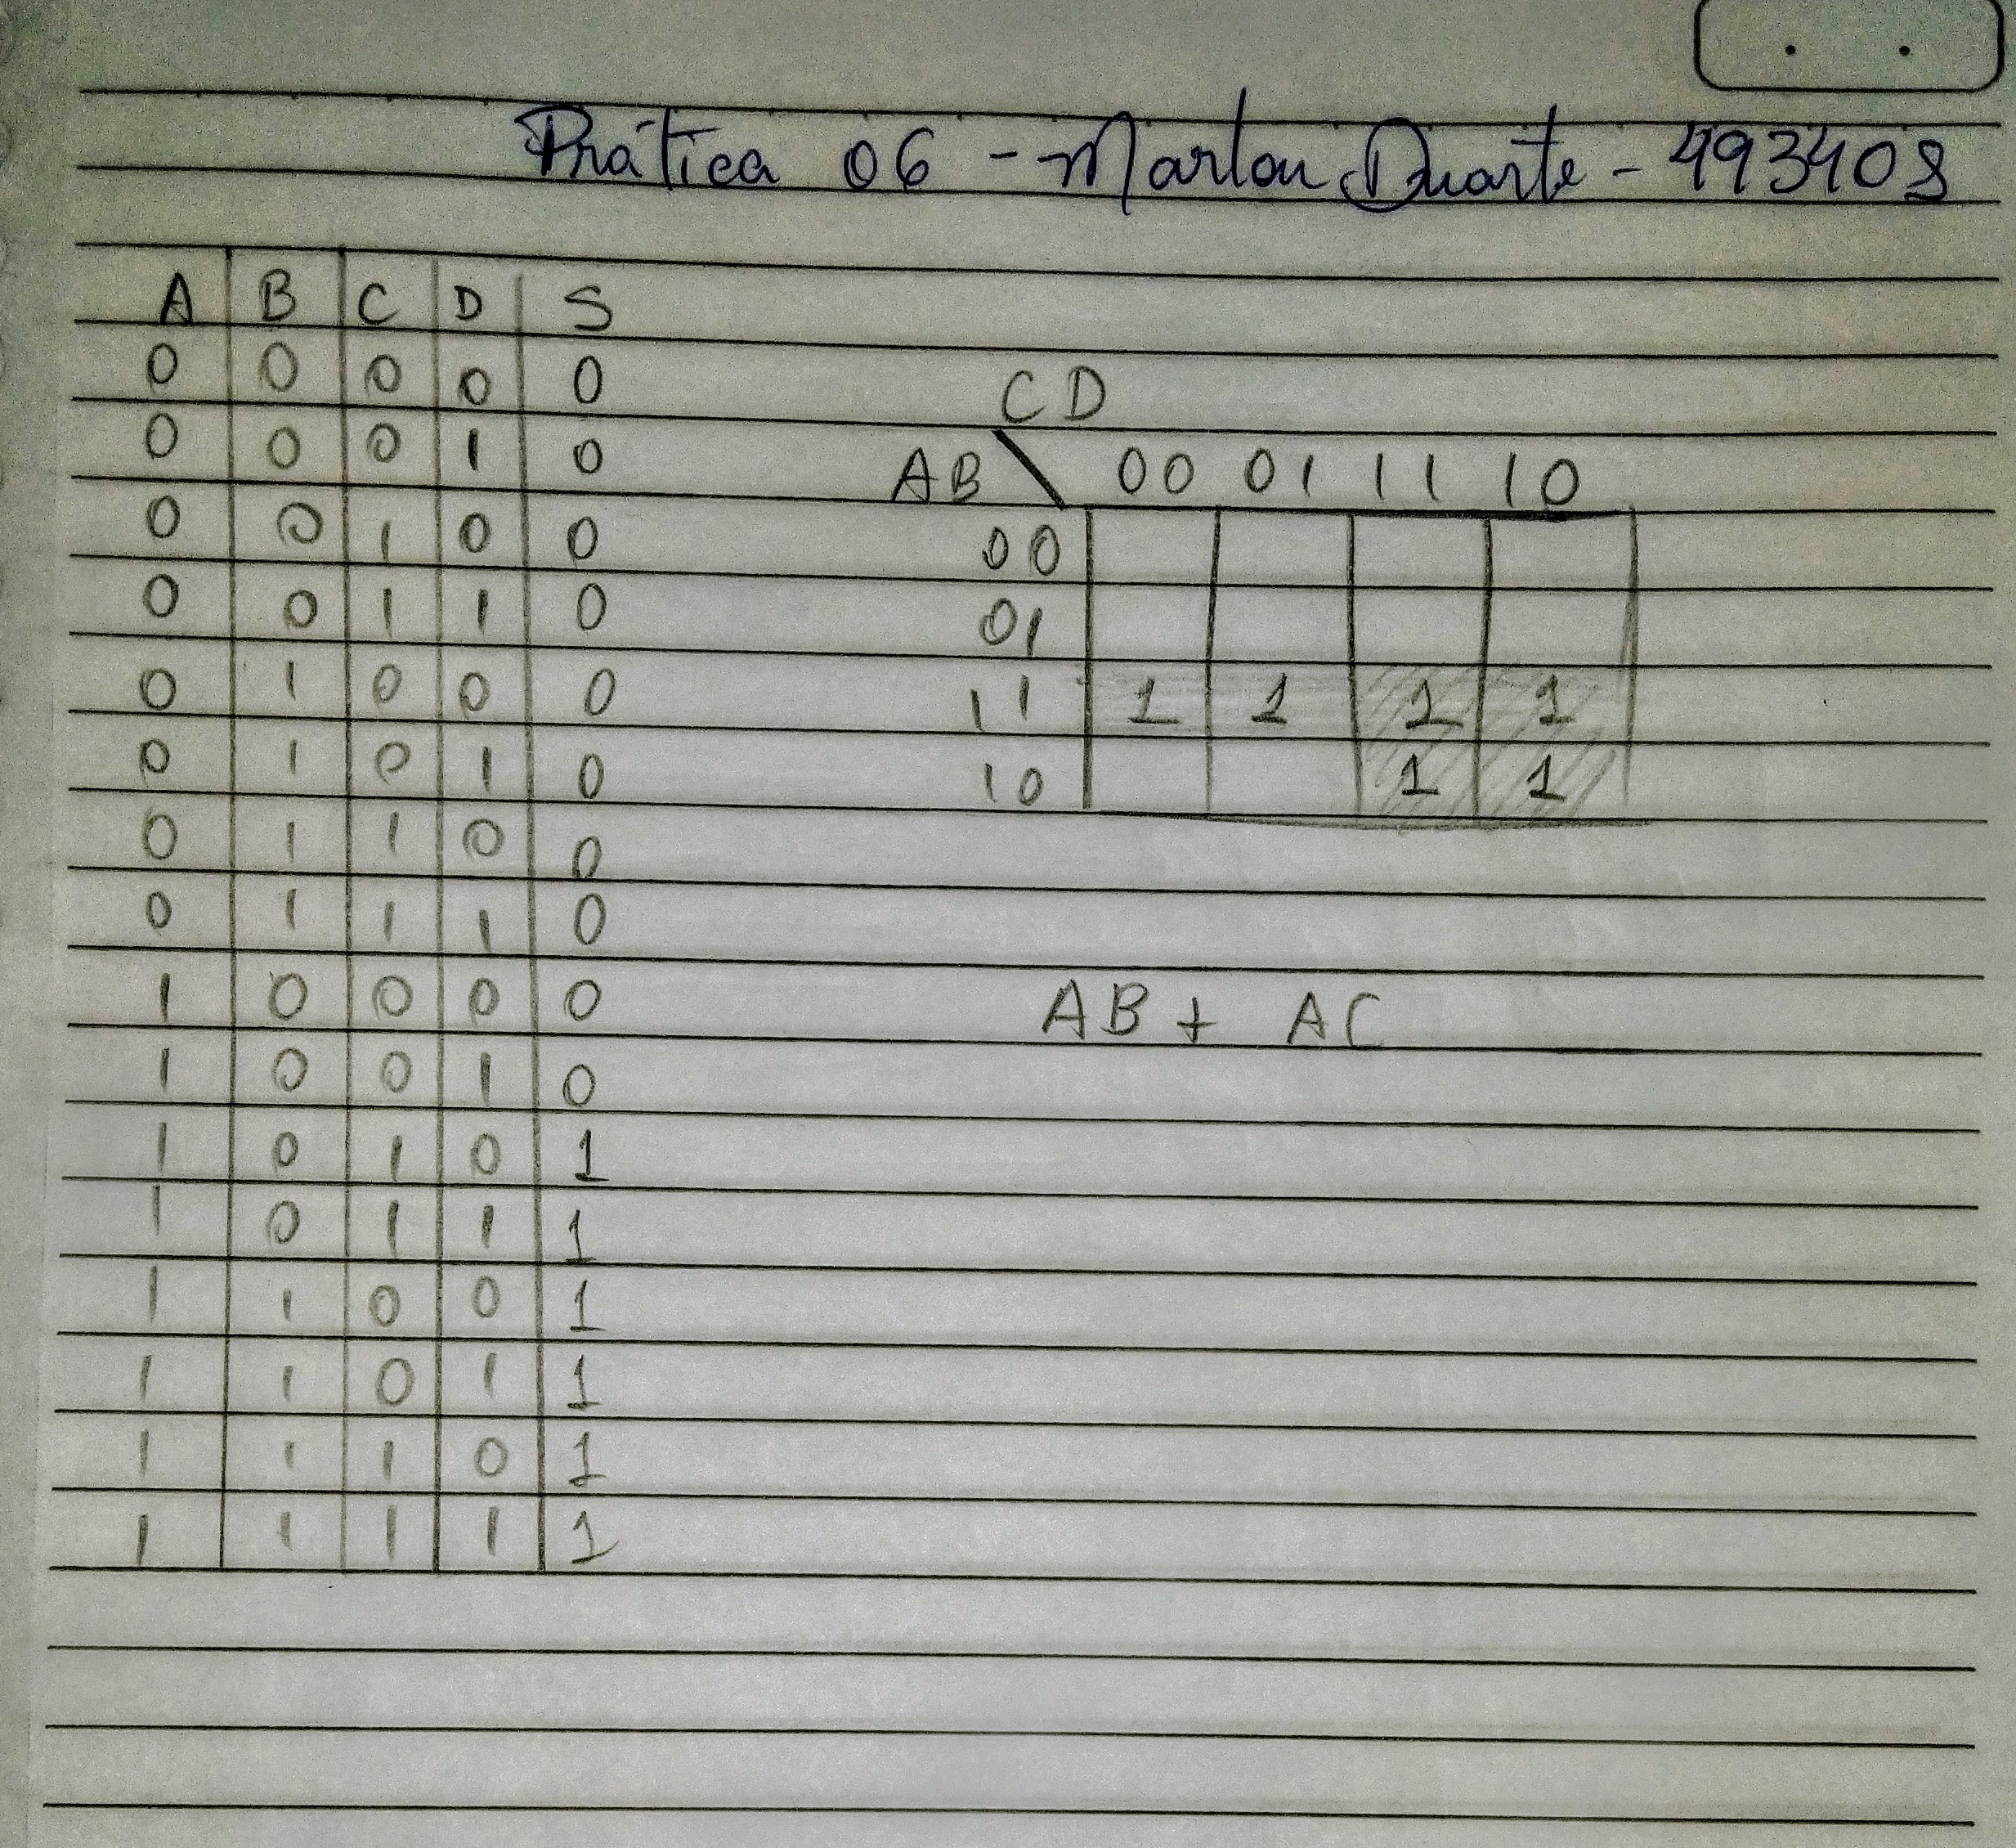 Prática 06 - Marlon Duarte - 493408
A B C D S
0 0 0 0 0
0 0 0 1 0
0 0 1 0 0
0 0 1 1 0
0 1 0 0 0
0 1 0 1 0
0 1 1 0 0
0 1 1 1 0
1 0 0 0 0
1 0 0 1 0
1 0 1 0 1
1 0 1 1 1
1 1 0 0 1
1 1 0 1 1
1 1 1 0 1
1 1 1 1 1
CD
AB \ 00 01 11 10
00
01
11 1 1 1 1
10 1 1
AB + AC